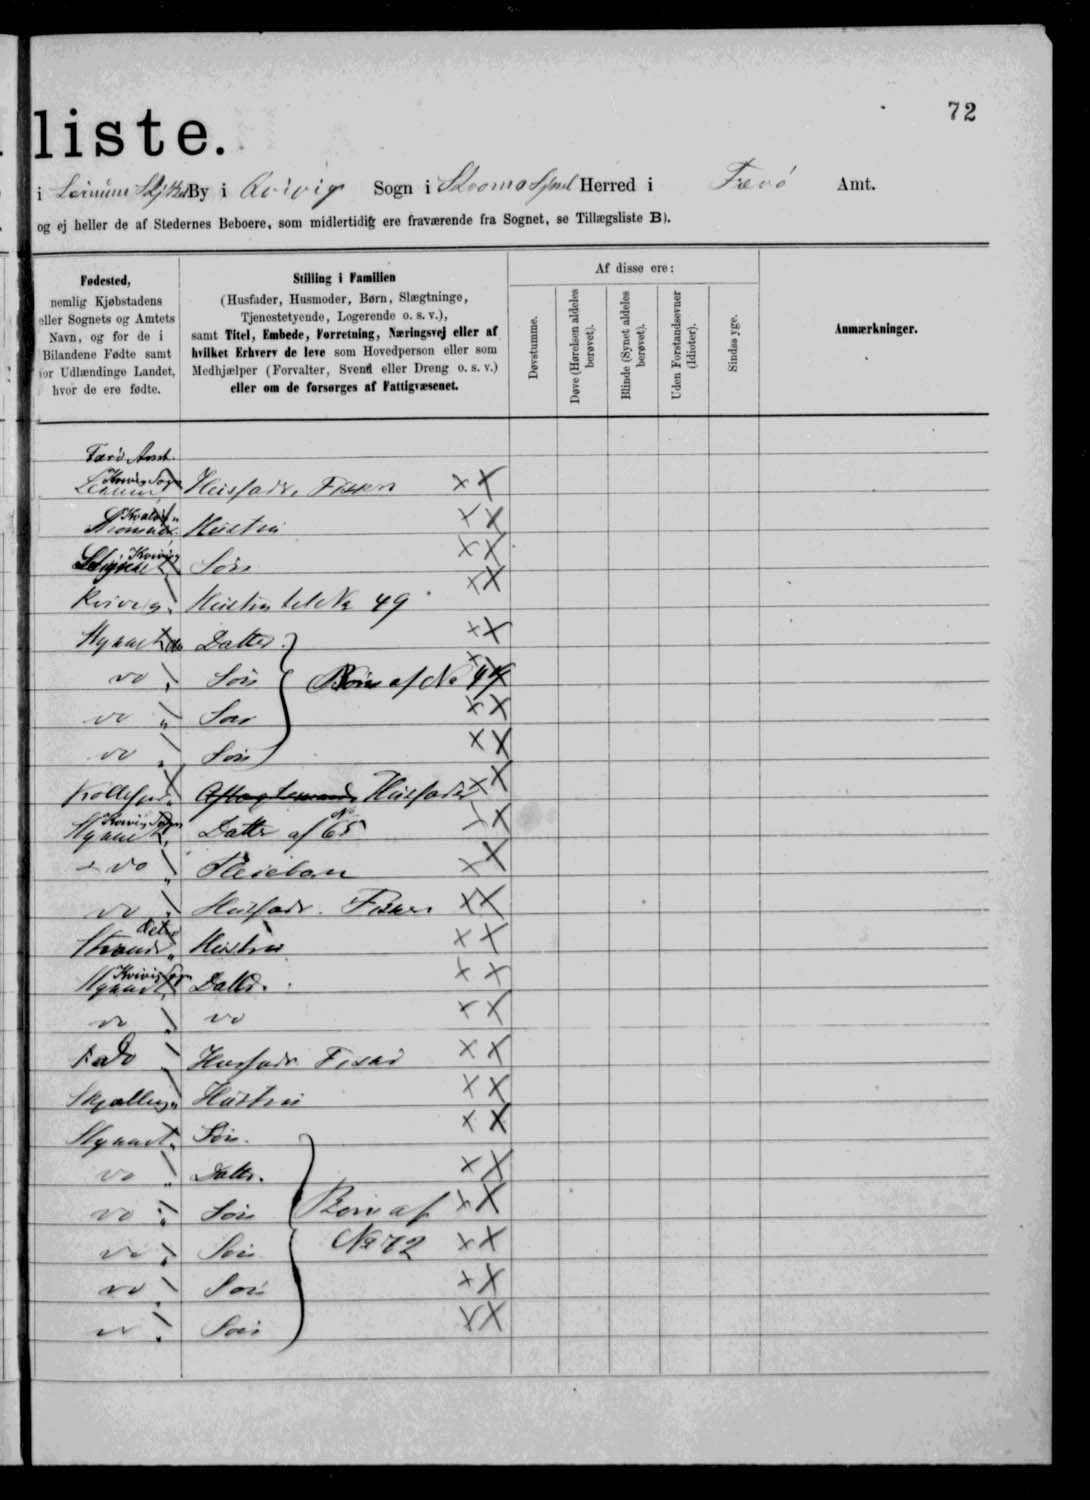 72
liste.
i By i Qvivig Sogn i Strømø Syssel Herred i Færø Amt.
og ej heller de af Stedernes Beboere, som midlertidig ere fraværende fra Sognet, se Tillægsliste B).
Fødested,
nemlig Kjøbstadens
eller Sognets og Amtets
Navn, og for de i
Bilandene Fødte samt
for Udlændinge Landet,
hvor de ere fødte.
Stilling i Familien
(Husfader, Husmoder, Børn, Slægtninge,
Tjenestetyende, Logerende o. s. v.),
samt Titel, Embede, Forretning, Næringsvej eller af
hvilket Erhverv de leve som Hovedperson eller som
Medhjælper (Forvalter, Svend eller Dreng o. s. v.)
eller om de forsørges af Fattigvæsenet.
Af disse ere:
Døvstumme.
Døve (Hørelsen aldeles
berøvet).
Blinde (Synet aldeles
berøvet).
Uden Forstandsevner
(Idioter).
Sindssyge.
Anmærkninger.
Færø Amt.
Kvivig Sogn
Husfader, Fisker X X
Hustru X X
Kvivig
Søn X X
Kvivig Hustru til No 49 X X
Datter X X
do Søn Børn af No
do Søn X X
do Søn X X
Kollefjord Aftægtsmand Husfader X X
Kvivig Sogn
Datter af No 65 X X
do Pleiebarn X X
do Husfader Fisker X X
Hustru X X
Kvivig Sogn
Datter X X
do do X X
do Husfader Fisker X X
Skjælling Hustru X X
Søn X X
do Datter X X
do Søn Børn af X X
do Søn No 72 X X
do Søn X X
do Søn X X